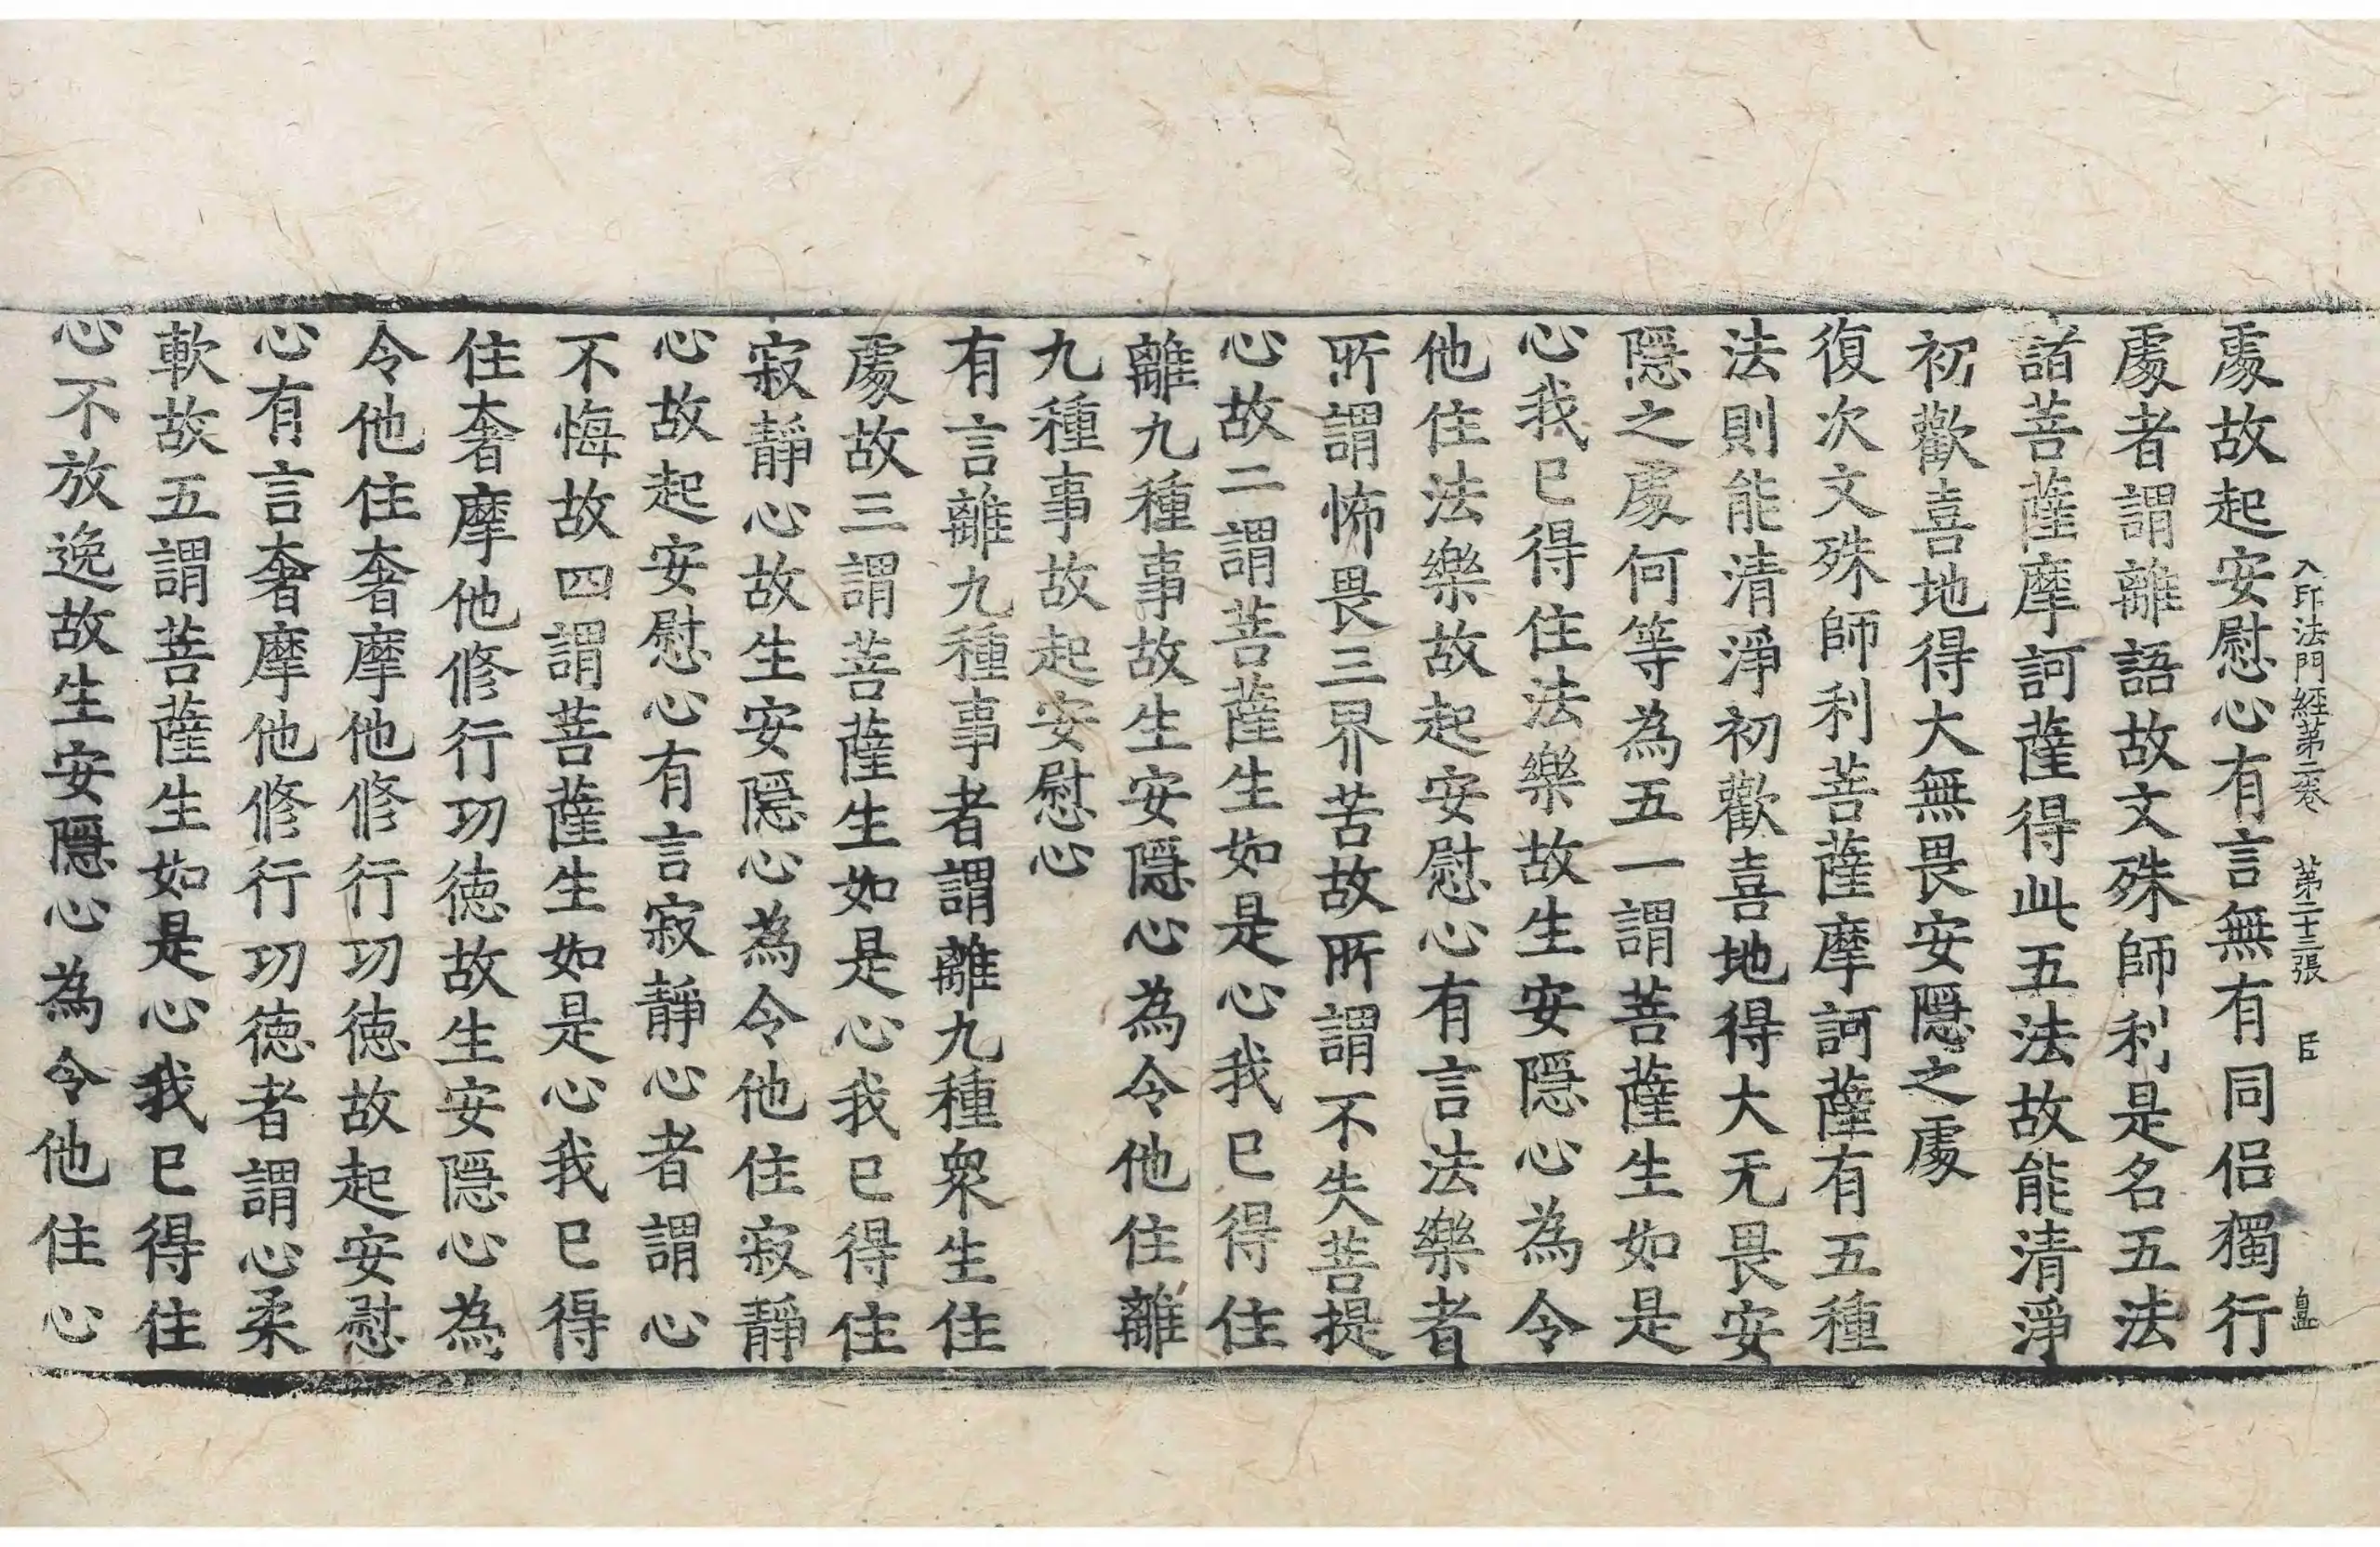 入印法門經第二卷 第二十三張 臣
處故起安慰心有言無有同侶獨行
處者謂離語故文殊師利是名五法
諸菩薩摩訶薩得此五法故能清淨
初歡喜地得大無畏安隱之處
復次文殊師利菩薩摩訶薩有五種
法則能清淨初歡喜地得大无畏安
隱之處何等為五一謂菩薩生如是
心我已得住法樂故生安隱心為令
他住法樂故起安慰心有言法樂者
所謂怖畏三界苦故所謂不失菩提
心故二謂菩薩生如是心我已得住
離九種事故生安隱心為令他住離
九種事故起安慰心
有言離九種事者謂離九種衆生住
處故三謂菩薩生如是心我已得住
寂靜心故生安隱心為令他住寂靜
心故起安慰心有言寂靜心者謂心
不悔故四謂菩薩生如是心我已得
住奢摩他修行功德故生安隱心為
令他住奢摩他修行功德故起安慰
心有言奢摩他修行功德者謂心柔
軟故五謂菩薩生如是心我已得住
心不放逸故生安隱心為令他住心